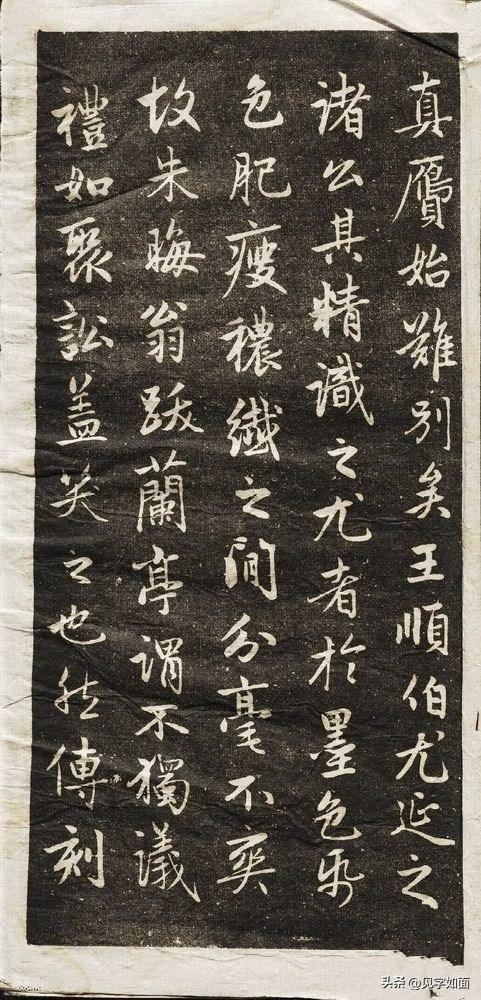 真贗始難別矣王順伯尤延之
諸公其精識之尤者於墨色帋
色肥瘦穠纖之間分毫不爽
故朱晦翁跋蘭亭謂不獨議
禮如聚訟盖笑之也然傳刻
头条 @见字如面